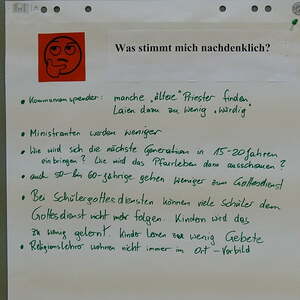 Was stimmt mich nachdenklich?
• Kommunionspender: manche "ältere" Priester finden
Laien dazu zu wenig "würdig"
• Ministranten werden weniger
• Wie wird sich die nächste Generation in 15-20 Jahren
einbringen? Wie wird das Pfarrleben dann ausschauen?
• auch 50- bis 60-jährige gehen weniger zum Gottesdienst
• Bei Schülergottesdiensten können viele Schüler dem
Gottesdienst nicht mehr folgen. Kindern wird das
zu wenig gelernt. Kinder lernen zu wenig Gebete
• Religionslehrer wohnen nicht immer im Ort - Vorbild